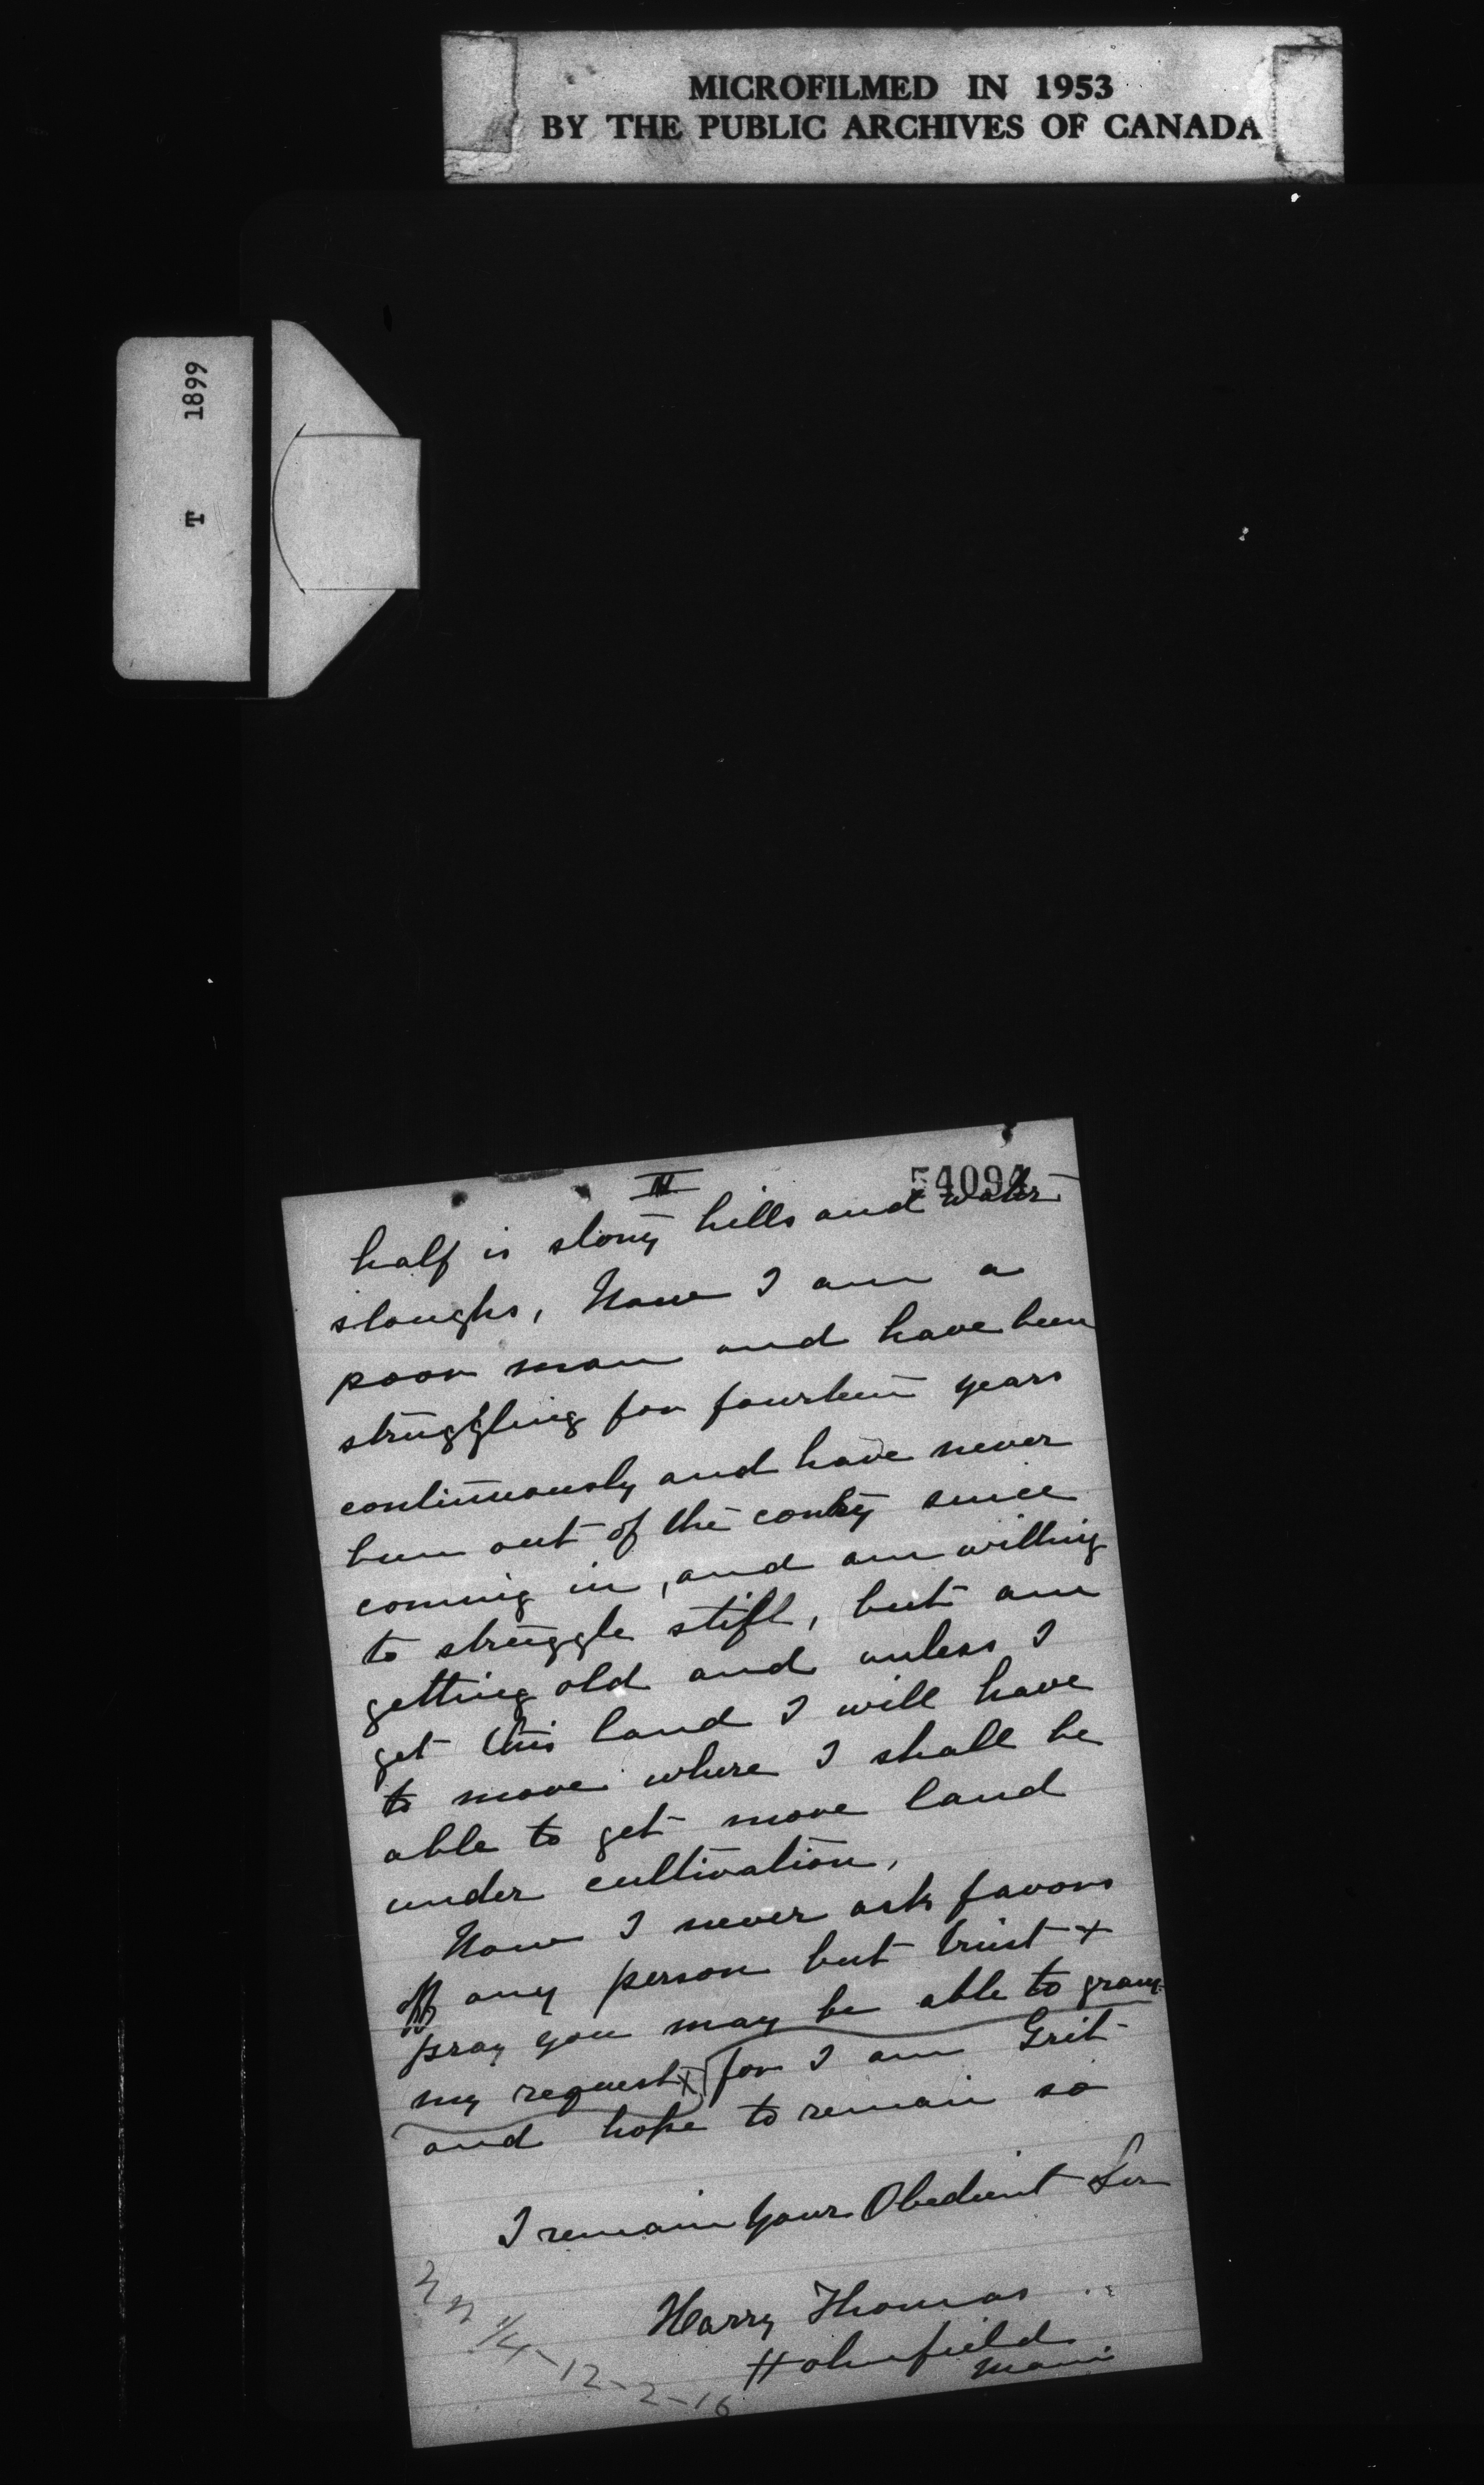 MICROFILMED IN 1953
BY THE PUBLIC ARCHIVES OF CANADA
T 1899
54094
half is stony hills and water
sloughs, Now I am a
poor man and have been
struggling for fourteen years
continuously and have never
been out of the contry since
coming in, and am willing
to struggle still, but am
getting old and unless I
get this land I will have
to move where I shall be
able to get more land
under cultivation,
Now I never ask favors
off any person but trust +
pray you may be able to grant
my request x for I am Grit
and hope to remain so
I remain Your Obedient Ser
Harry Thomas
Holmfield
Mani
1/4-12-2-16